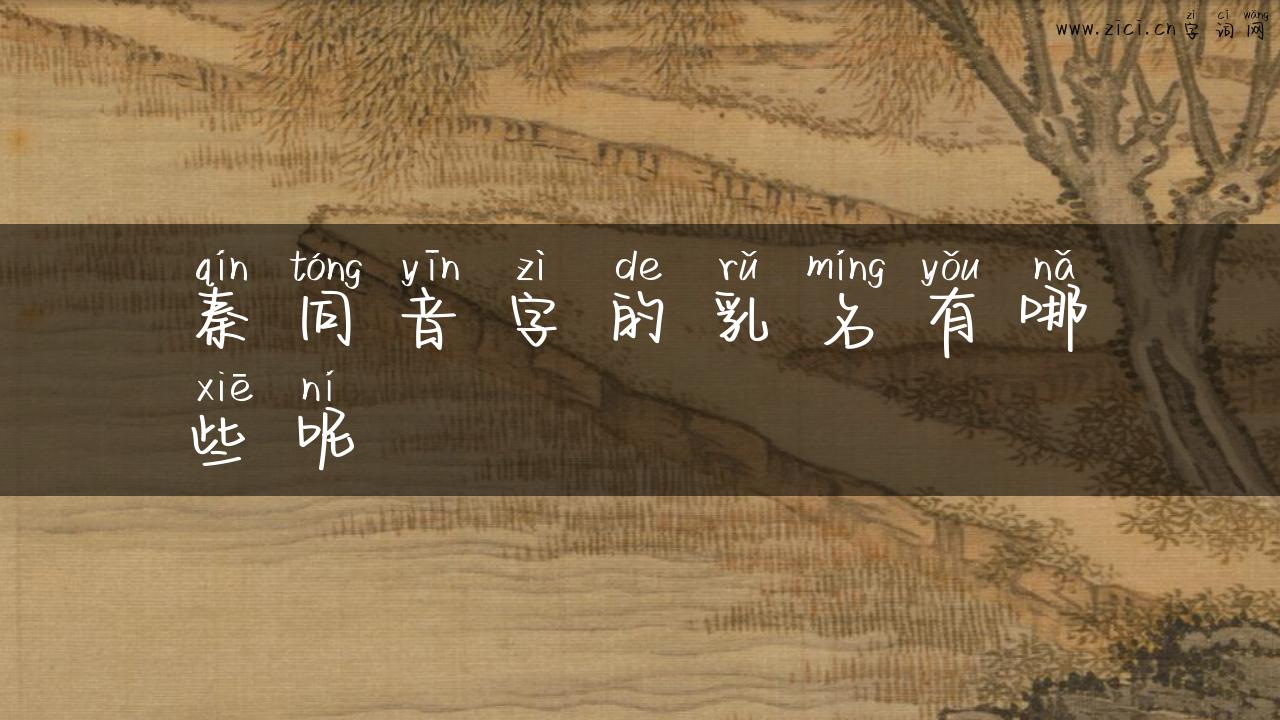 zì cí wǎng
www.zici.cn字词网
qín tóng yīn zì de rǔ míng yǒu nǎ
秦同音字的乳名有哪
xiē ní
些呢